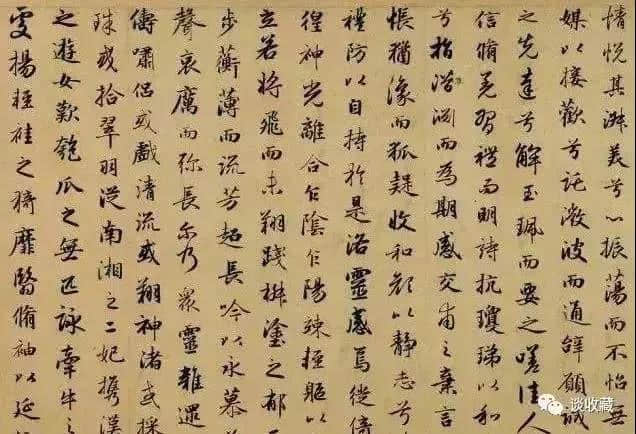 情悦其淑美兮心振蕩而不怡無
媒以接歡兮託微波而通辭願誠
之先達兮解玉珮而要之嗟佳人
信脩羌習禮而明詩抗瓊珶以和
兮指潛淵而為期感交甫之棄言
悵猶豫而狐疑收和顏以静志兮
禮防以自持於是洛靈感焉徙倚
徨神光離合乍陰乍陽竦輕軀以
立若將飛而未翔踐椒塗之郁
步蘅薄而流芳超長吟以永慕
聲哀厲而彌長爾乃眾靈雜遝
儔嘯侶或戲清流或翔神渚或採
珠或拾翠羽從南湘之二妃攜漢
之遊女歎匏瓜之無匹詠牽牛之
處揚輕袿之猗靡翳脩袖以延
谈收藏